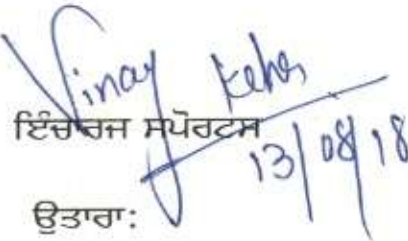 Vinay
ਇੰਚਾਰਜ ਸਪੋਰਟਸ
13/08/18
ਉਤਾਰਾ: